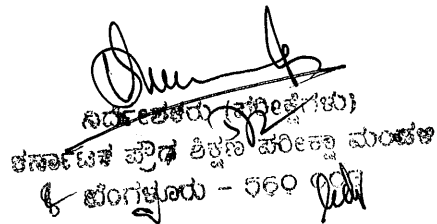 ನಿರ್ದೇಶಕರು (ಪರೀಕ್ಷೆಗಳು)
ಕರ್ನಾಟಕ ಪ್ರೌಢ ಶಿಕ್ಷಣ ಪರೀಕ್ಷಾ ಮಂಡಳಿ
ಬೆಂಗಳೂರು - 560